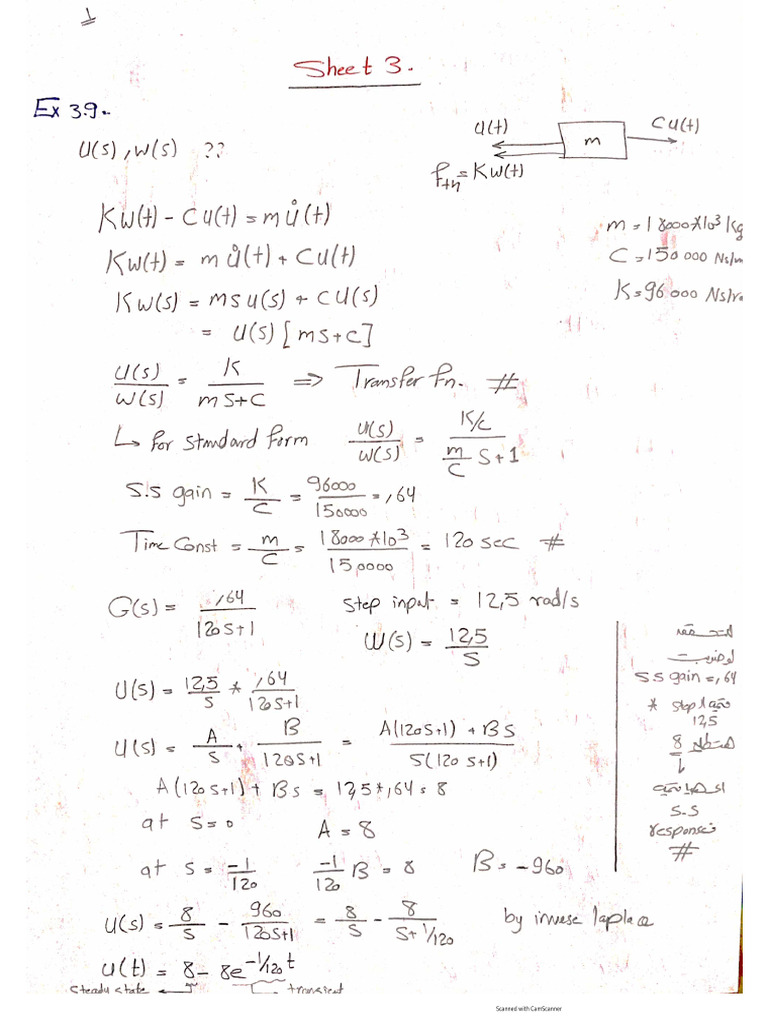 1
Sheet 3.
Ex 3.9.
U(s), W(s) ??
U(t) m CU(t)
KW(t)
KW(t) - CU(t) = mů(t)
m = 18000*10³ Kg
KW(t) = mů(t) + CU(t)
C = 150 000 Ns/m
KW(s) = msU(s) + CU(s)
K = 96 000 Ns/ra
= U(s) [ms+c]
U(s)/W(s) = K/(ms+c) => Transfer fn. #
↳ for standard form U(s)/W(s) = (K/c)/(m/c s+1)
S.S gain = K/C = 96000/150000 = ,64
Time Const = m/C = 18000*10³/150000 = 120 sec #
G(s) = ,64/(120s+1) step input = 12,5 rad/s
W(s) = 12,5/s
U(s) = 12,5/s * ,64/(120s+1)
U(s) = A/s + B/(120s+1) = (A(120s+1) + Bs)/(s(120s+1))
A(120s+1) + Bs = 12,5*,64 = 8
at s=0 A = 8
at s = -1/120 -1/120 B = 8 B = -960
U(s) = 8/s - 960/(120s+1) = 8/s - 8/(s+1/120) by invese laplace
U(t) = 8 - 8e^-1/120 t
steady state transient
S.S gain = ,64
* step
12,5
8
↓
S.S
response
#
Scanned with CamScanner